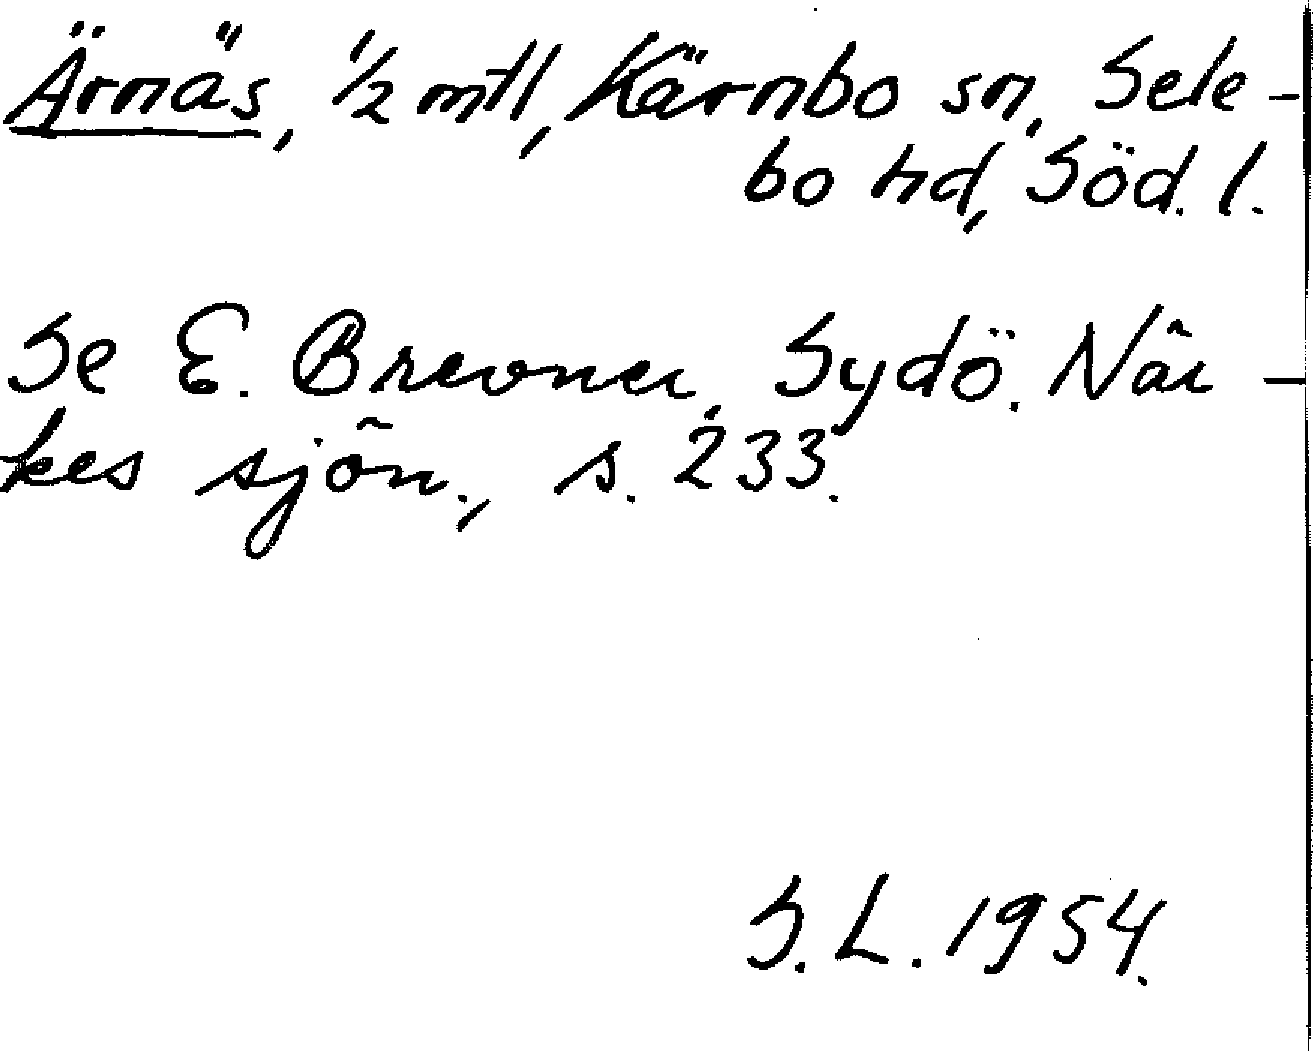 Ärnäs, 1/2 mtl, Kärnbo sn, Sele-
bo hd, Söd. l.
Se E. Brevner, Sydö. När-
kes sjön., s. 233.
S. L. 1954.